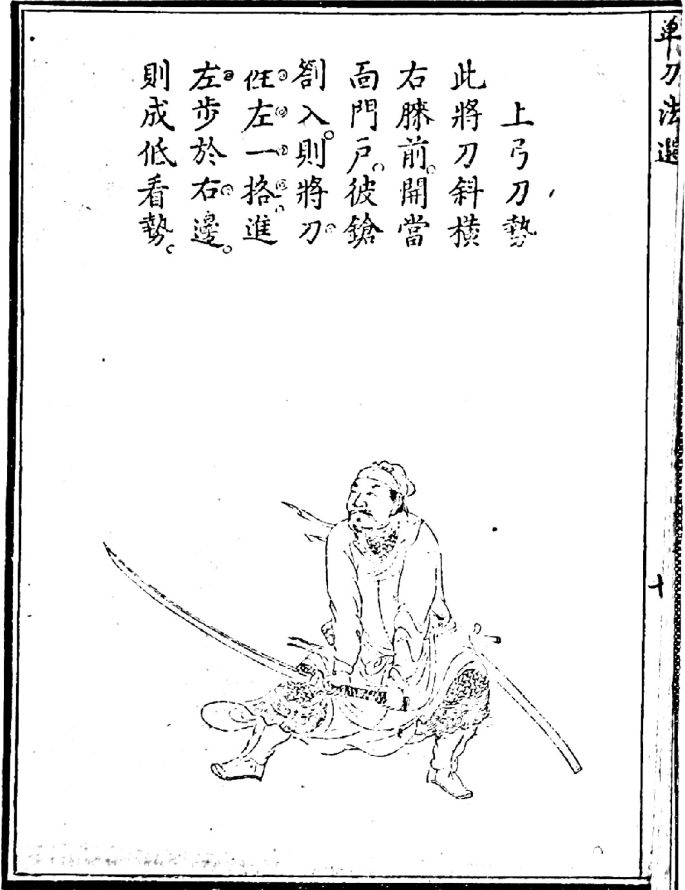 单刀法選
十
上弓刀勢
此將刀斜橫
右膝前。開當
面門戶。彼鎗
劄入。則將刀
徃左一挌。進
左步於右邊。
則成低看勢。